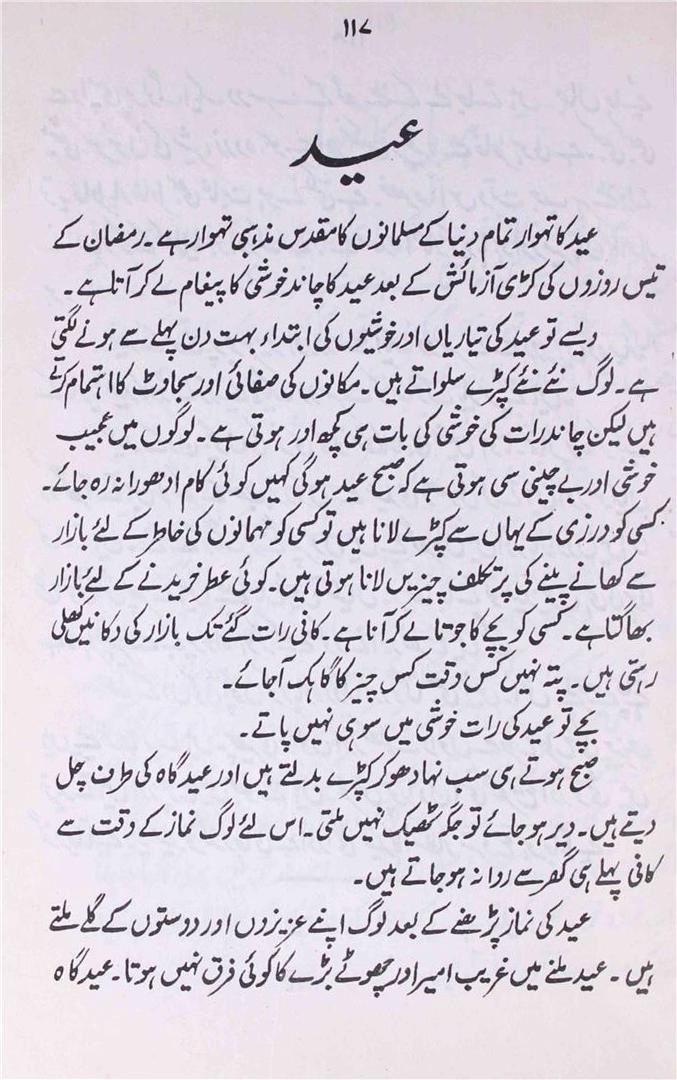 ۱۱۷
عید
عید کا تہوار تمام دنیا کے مسلمانوں کا مقدس مذہبی تہوار ہے۔ رمضان کے
تیس روزوں کی کڑی آزمائش کے بعد عید کا چاند خوشی کا پیغام لے کر آتا ہے۔
ویسے تو عید کی تیاریاں اور خوشیوں کی ابتداء بہت دن پہلے سے ہونے لگتی
ہے۔ لوگ نئے نئے کپڑے سلواتے ہیں۔ مکانوں کی صفائی اور سجاوٹ کا اہتمام کرتے
ہیں لیکن چاند رات کی خوشی کی بات ہی کچھ اور ہوتی ہے۔ لوگوں میں عجیب
خوشی اور بے چینی سی ہوتی ہے کہ صبح عید ہوگی کہیں کوئی کام ادھورا نہ رہ جائے۔
کسی کو درزی کے یہاں سے کپڑے لانا ہیں تو کسی کو مہمانوں کی خاطر کے لئے بازار
سے کھانے پینے کی پرتکلف چیزیں لانا ہوتی ہیں۔ کوئی عطر خریدنے کے لئے بازار
بھاگتا ہے۔ کسی کو بچے کا جوتا لے کر آنا ہے۔ کافی رات گئے تک بازار کی دکانیں کھلی
رہتی ہیں۔ پتہ نہیں کس وقت کس چیز کا گاہک آجائے۔
بچے تو عید کی رات خوشی میں سوی نہیں پاتے۔
صبح ہوتے ہی سب نہا دھو کر کپڑے بدلتے ہیں اور عید گاہ کی طرف چل
دیتے ہیں۔ دیر ہو جائے تو جگہ ٹھیک نہیں ملتی۔ اس لئے لوگ نماز کے وقت سے
کافی پہلے ہی گھر سے روانہ ہو جاتے ہیں۔
عید کی نماز پڑھنے کے بعد لوگ اپنے عزیزوں اور دوستوں کے گلے ملتے
ہیں۔ عید ملنے میں غریب امیر اور چھوٹے بڑے کا کوئی فرق نہیں ہوتا۔ عید گاہ